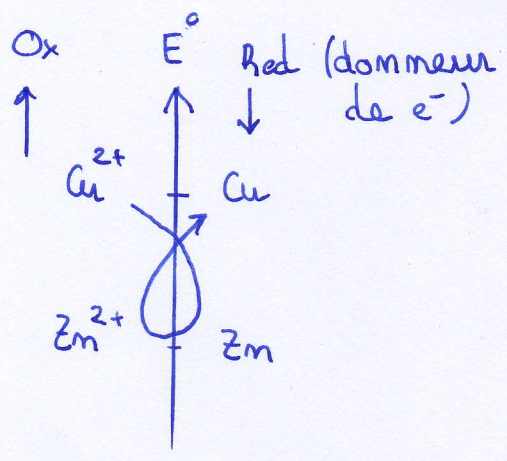 Ox E° Red (donneur
de e⁻)
Cu²⁺ Cu
Zn²⁺ Zn